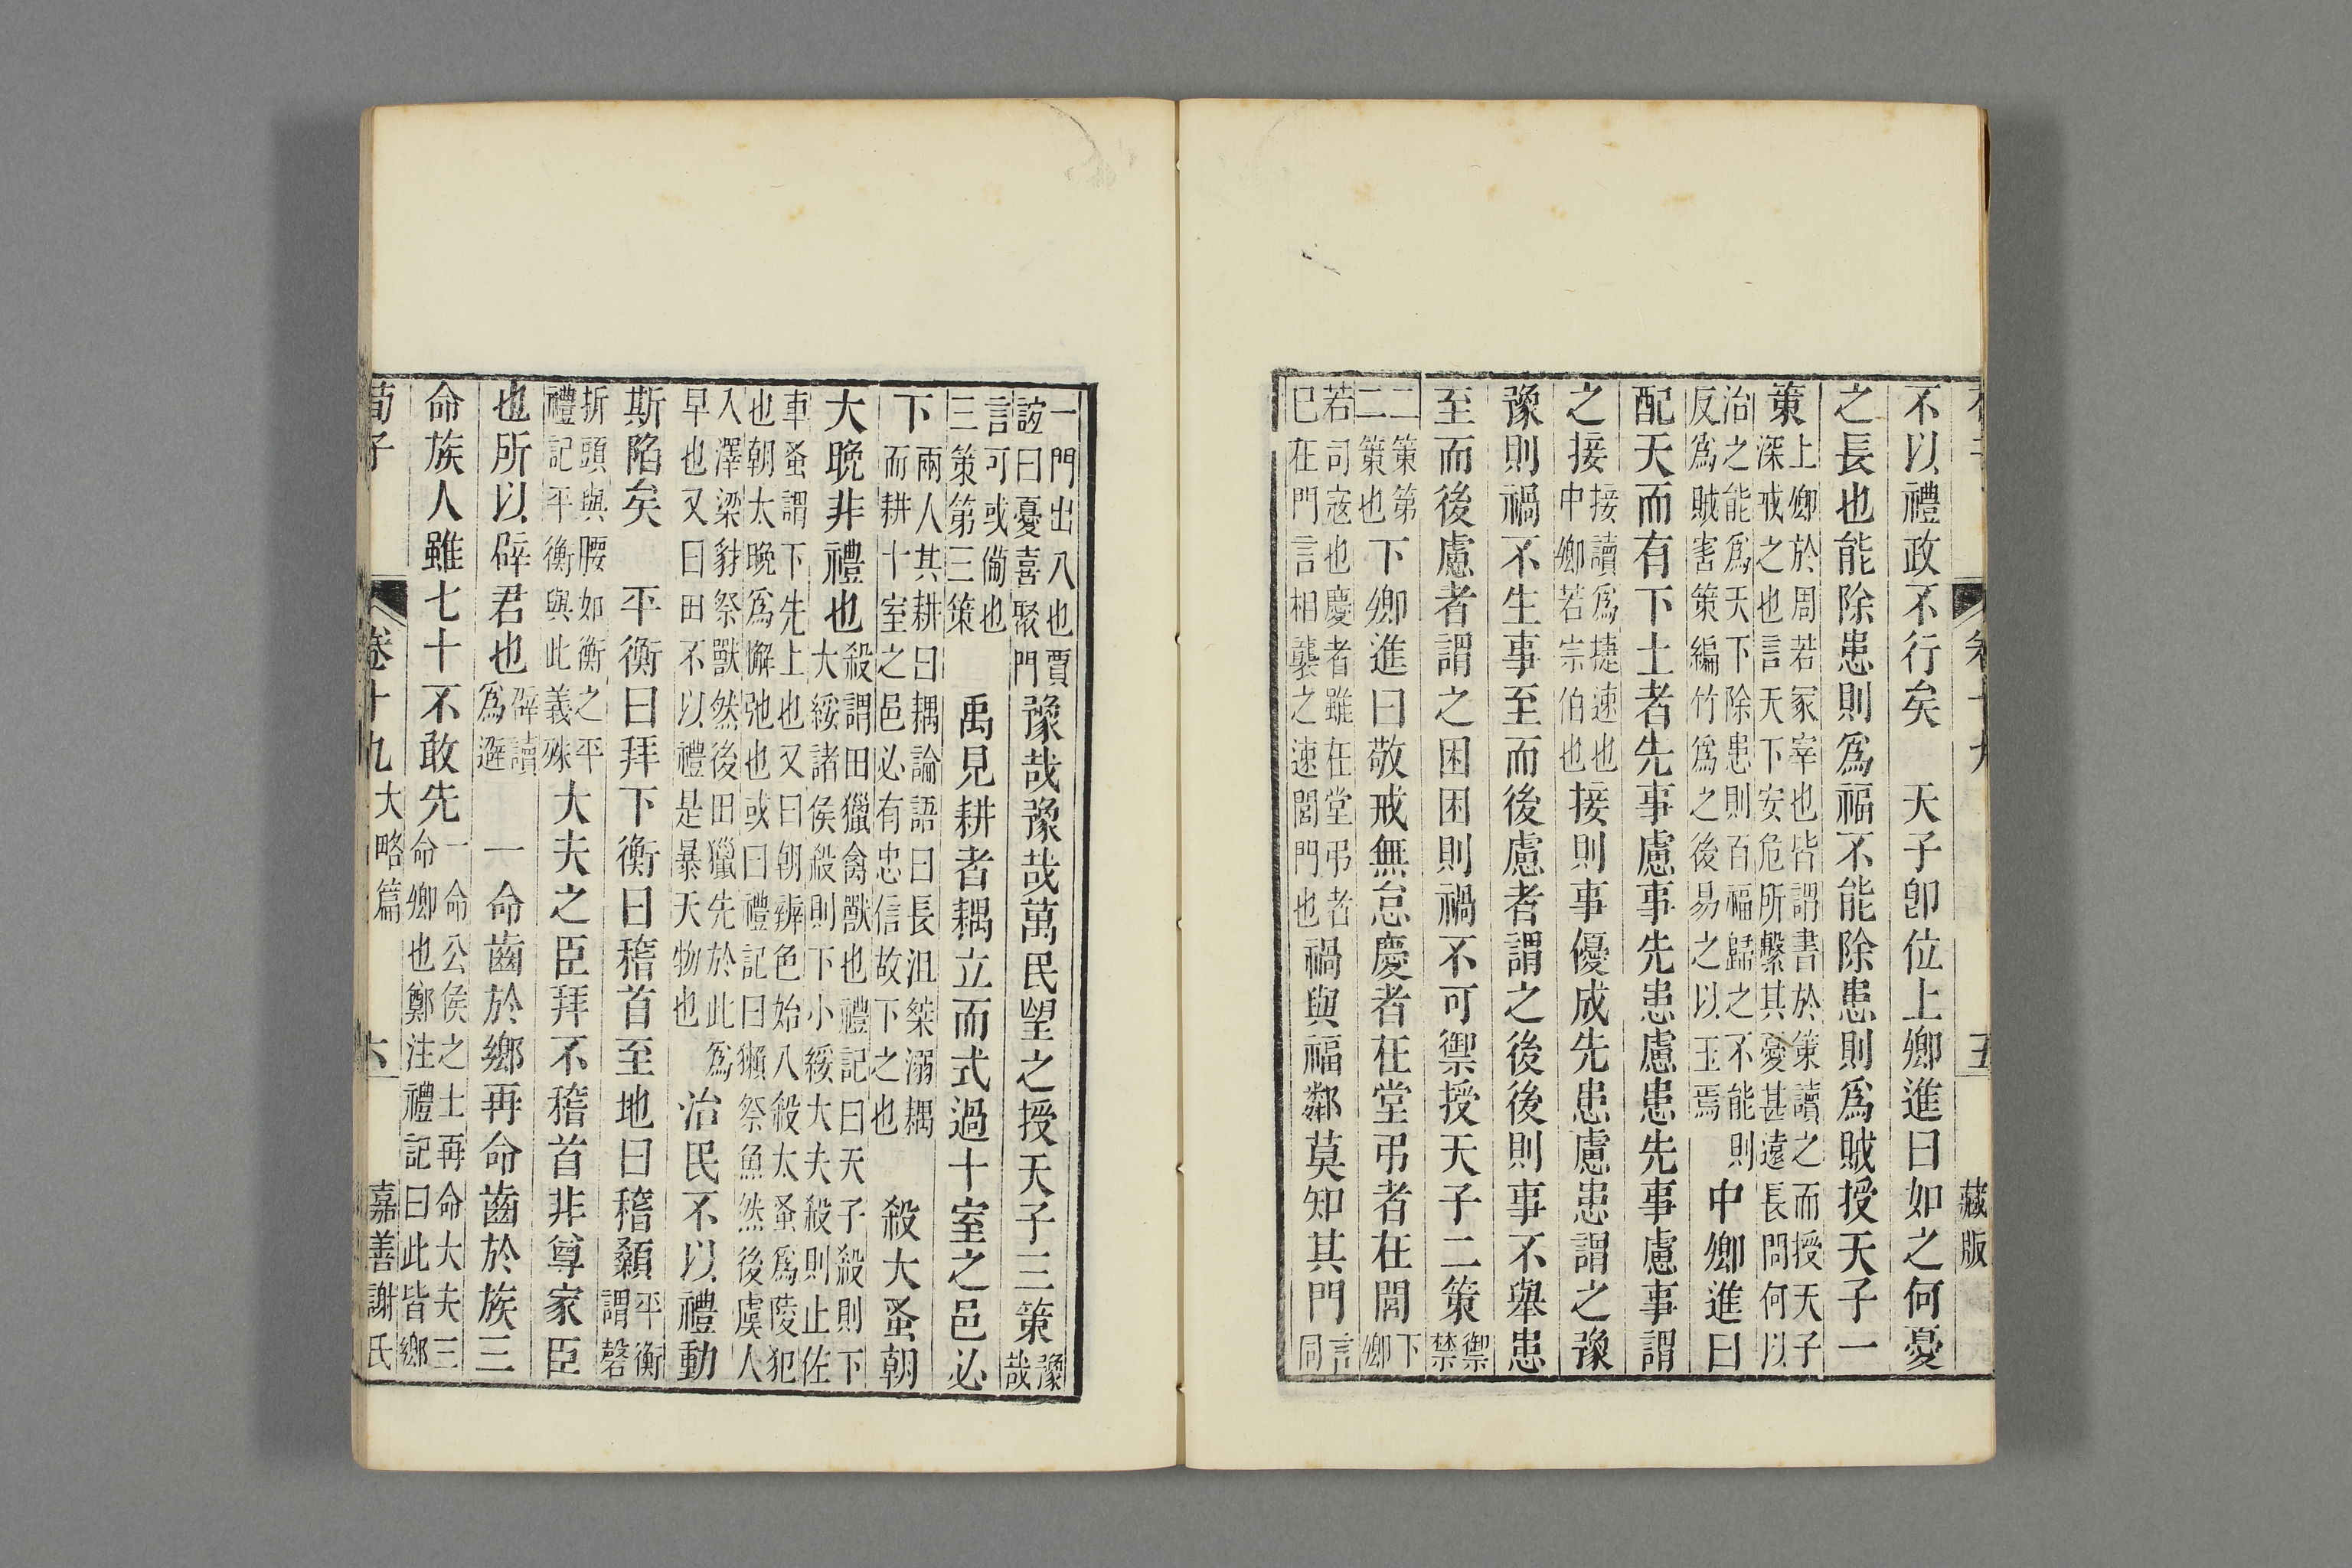 藏版
不以禮政不行矣　天子卽位上卿進曰如之何憂
之長也能除患則爲福不能除患則爲賊授天子一
策上卿於周若冢宰也皆謂書於策讀之而授天子深戒之也言天下安危所繫其憂甚遠長問何以
治之能爲天下除患則百福歸之不能則反爲賊害策編竹爲之後易之以玉焉　中卿進曰
配天而有下土者先事慮事先患慮患先事慮事謂
之接接讀爲捷速也中卿若宗伯也接則事優成先患慮患謂之豫
豫則禍不生事至而後慮者謂之後後則事不舉患
至而後慮者謂之困困則禍不可禦授天子二策禦禁
二策第二策也下卿進曰敬戒無怠慶者在堂弔者在閭下卿
若司寇也慶者雖在堂弔者已在門言相襲之速閭門也禍與福鄰莫知其門言同
一門出入也賈誼曰憂喜聚門豫哉豫哉萬民望之授天子三策豫哉
言可或偹也三策第三策　禹見耕者耦立而式過十室之邑必
下兩人共耕曰耦論語曰長沮桀溺耦而耕十室之邑必有忠信故下之也　殺大蚤朝
大晚非禮也殺謂田獵禽獸也禮記曰天子殺則下大綏諸侯殺則下小綏大夫殺則止佐
車蚤謂下先上也又曰朝辨色始入殺太蚤爲陵犯也朝太晚爲懈弛也或曰禮記曰獺祭魚然後虞人
入澤梁豺祭獸然後田獵先於此爲早也又曰田不以禮是暴天物也　治民不以禮動
斯陷矣　平衡曰拜下衡曰稽首至地曰稽顙平衡謂磬
折頭與腰如衡之平禮記平衡與此義殊大夫之臣拜不稽首非尊家臣
也所以辟君也辟讀爲避　一命齒於鄉再命齒於族三
命族人雖七十不敢先一命公侯之士再命大夫三命卿也鄭注禮記曰此皆鄉
荀子　卷十九　大略篇　六　嘉善謝氏